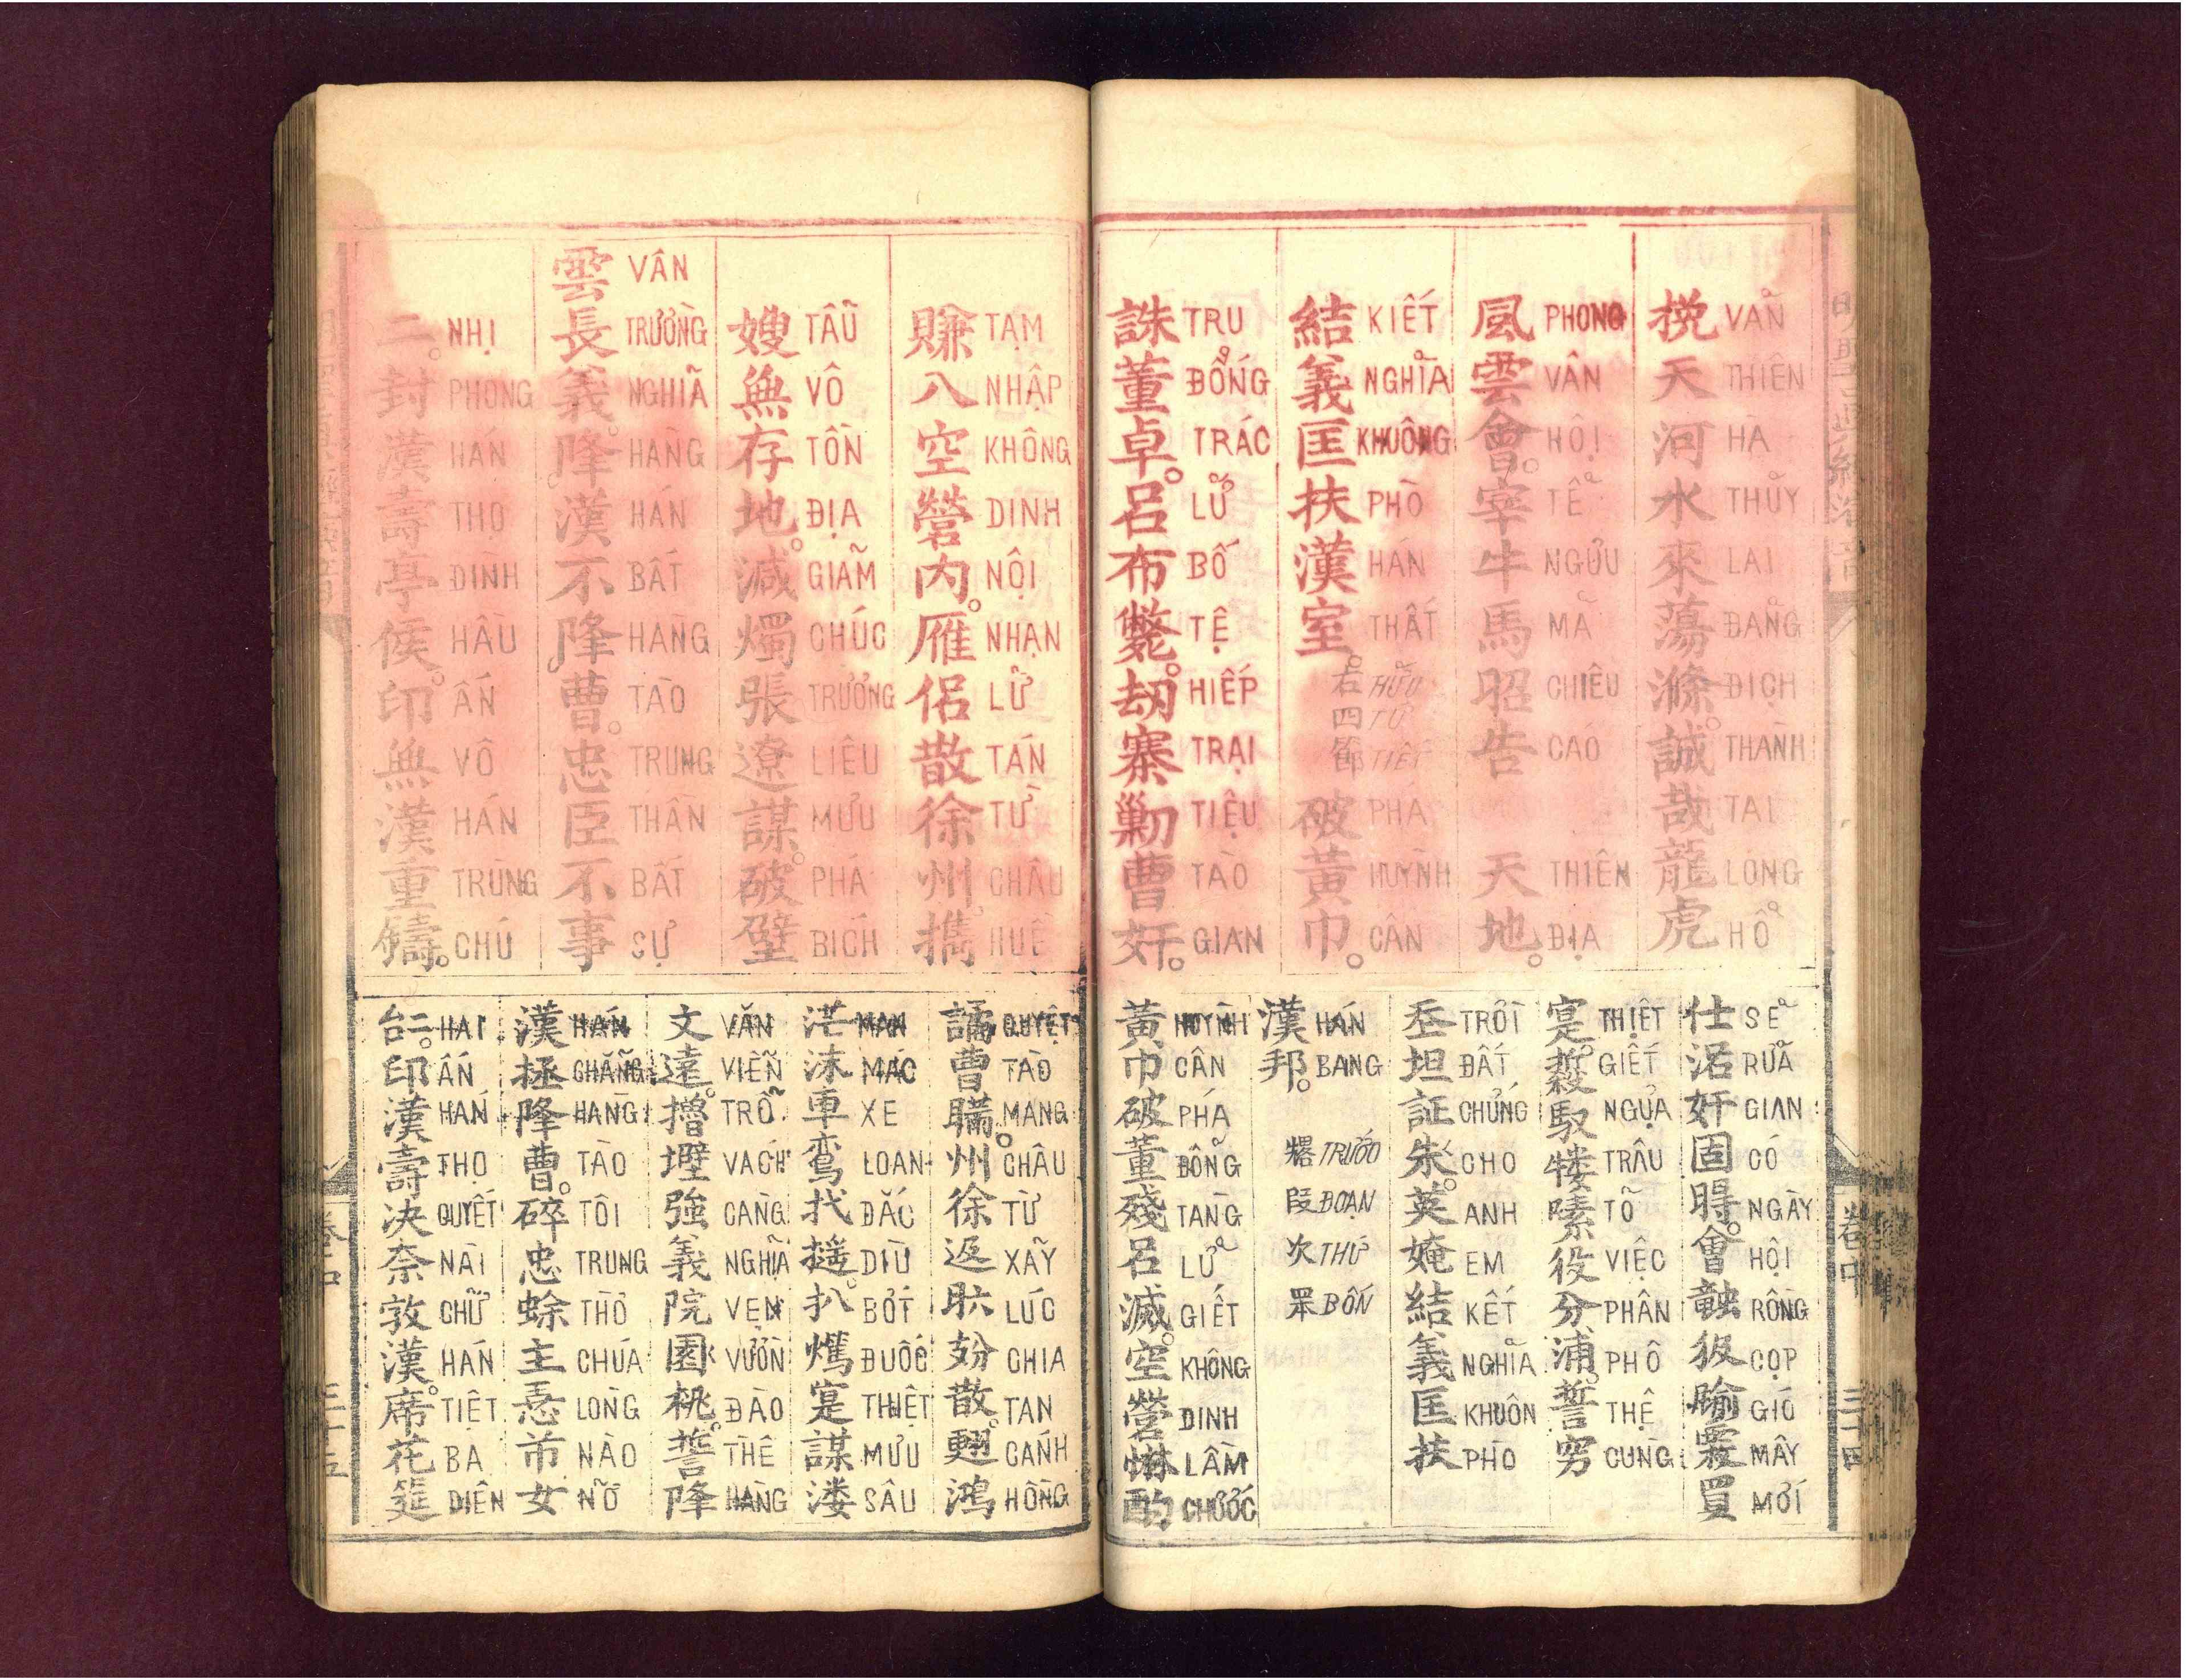 挽天河水來蕩滌。誠哉龍虎
VÃN THIÊN HÀ THỦY LAI ĐÃNG ĐỊCH THÀNH TAI LONG HỔ
風雲會。宰牛馬昭告 天地。
PHONG VÂN HỘI TỂ NGƯU MÃ CHIÊU CÁO THIÊN ĐỊA
結義匡扶漢室。右四節 破黃巾。
KIẾT NGHĨA KHUÔNG PHÒ HÁN THẤT HỮU TỨ TIẾT PHÁ HUỲNH CÂN
誅董卓。呂布斃。刼寨勦曹奸。
TRU ĐỔNG TRÁC LỮ BỐ TỆ HIẾP TRẠI TIỆU TÀO GIAN
仕奸固。會買
SẼ RỬA GIAN CÓ NGÀY HỘI RỒNG CỌP GIÓ MÂY MỚI
寔。馭役分浦。誓窮
THIỆT GIẾT NGỰA TRÂU TÕ VIỆC PHÂN PHÔ THỆ CÙNG
坦証朱。英俺結義匡扶
TRỜI ĐẤT CHỨNG CHO ANH EM KẾT NGHĨA KHUÔN PHÒ
漢邦。段次
HÁN BANG TRƯỚC ĐOẠN THỨ BỐN
黃巾破董殘呂滅。空營酌
HUỲNH CÂN PHÁ ĐỔNG TÀNG LỮ GIẾT KHÔNG DINH LẦM CHƯỚC
卷中
三十四
賺入空營內。雁侶散徐州。攜
TẠM NHẬP KHÔNG DINH NỘI NHẠN LỮ TÁN TỪ CHÂU HUỀ
嫂無存地。滅燭張遼謀。破壁
TẨU VÔ TỒN ĐỊA GIẢM CHÚC TRƯƠNG LIÊU MƯU PHÁ BÍCH
雲長義。降漢不降曹。忠臣不事
VÂN TRƯỜNG NGHIÃ HÀNG HÁN BẤT HÀNG TÀO TRUNG THẦN BẤT SỰ
二。封漢壽亭侯。印無漢重鑄。
NHỊ PHONG HÁN THỌ ĐÌNH HẦU ẤN VÔ HÁN TRÙNG CHÚ
譎曹瞞。州徐返散。鴻
QUYỆT TÀO MANG CHÂU TỪ XÃY LÚC CHIA TAN CÁNH HỒNG
茫沫車鸞找。扒寔謀漊
MAN MÁC XE LOAN ĐẮC DÌU BỚT ĐUỐC THIỆT MƯU SÂU
文遠。強義院園桃。誓降
VĂN VIỄN TRỖ VÁCH CÀNG NGHĨA VẸN VƯỜN ĐÀO THỀ HÀNG
漢拯降曹。碎忠蜍主女
HÁN CHẲNG HÀNG TÀO TÔI TRUNG THỜ CHÚA LÒNG NÀO NỠ
印漢壽决奈漢。席花筵
HAI ẤN HÁN THỌ QUYẾT NÀI CHỮ HÁN TIỆT BA DIÊN